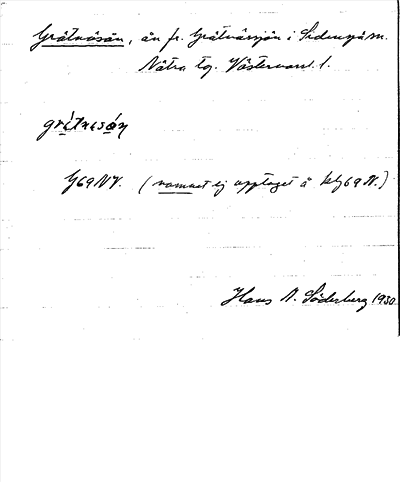 Gråtnäsån, ån fr. Gråtnässjön i Sidensjö sn.
Nätra tg. Västernorrl. l.
grátnesá̱n
G69NV. (namnet ej upptaget å kbl 69 N.)
Hans N. Söderberg 1930.